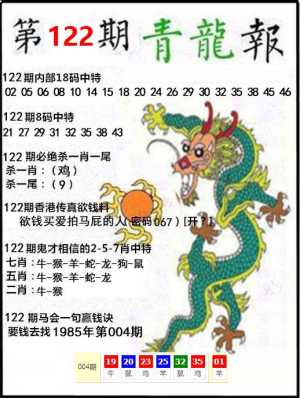 第122期 青龍報
122期内部18码中特
02 05 06 08 10 14 15 18 20 24 26 29 30 35 36 38 45 46
122期8码中特
21 27 29 31 32 35 38 43
122期必绝杀一肖一尾
杀一肖：（鸡）
杀一尾：（9）
122期香港传真欲钱料
欲钱买爱拍马屁的人(密码067)[开?]
122期鬼才相信的2-5-7肖中特
七肖：牛-猴-羊-蛇-龙-狗-鼠
五肖：牛-猴-羊-蛇-龙
二肖：牛-猴
122期马会一句赢钱诀
要钱去找1985年第004期
004期 19 20 23 25 32 35 01
牛 鼠 鸡 羊 鼠 鸡 羊